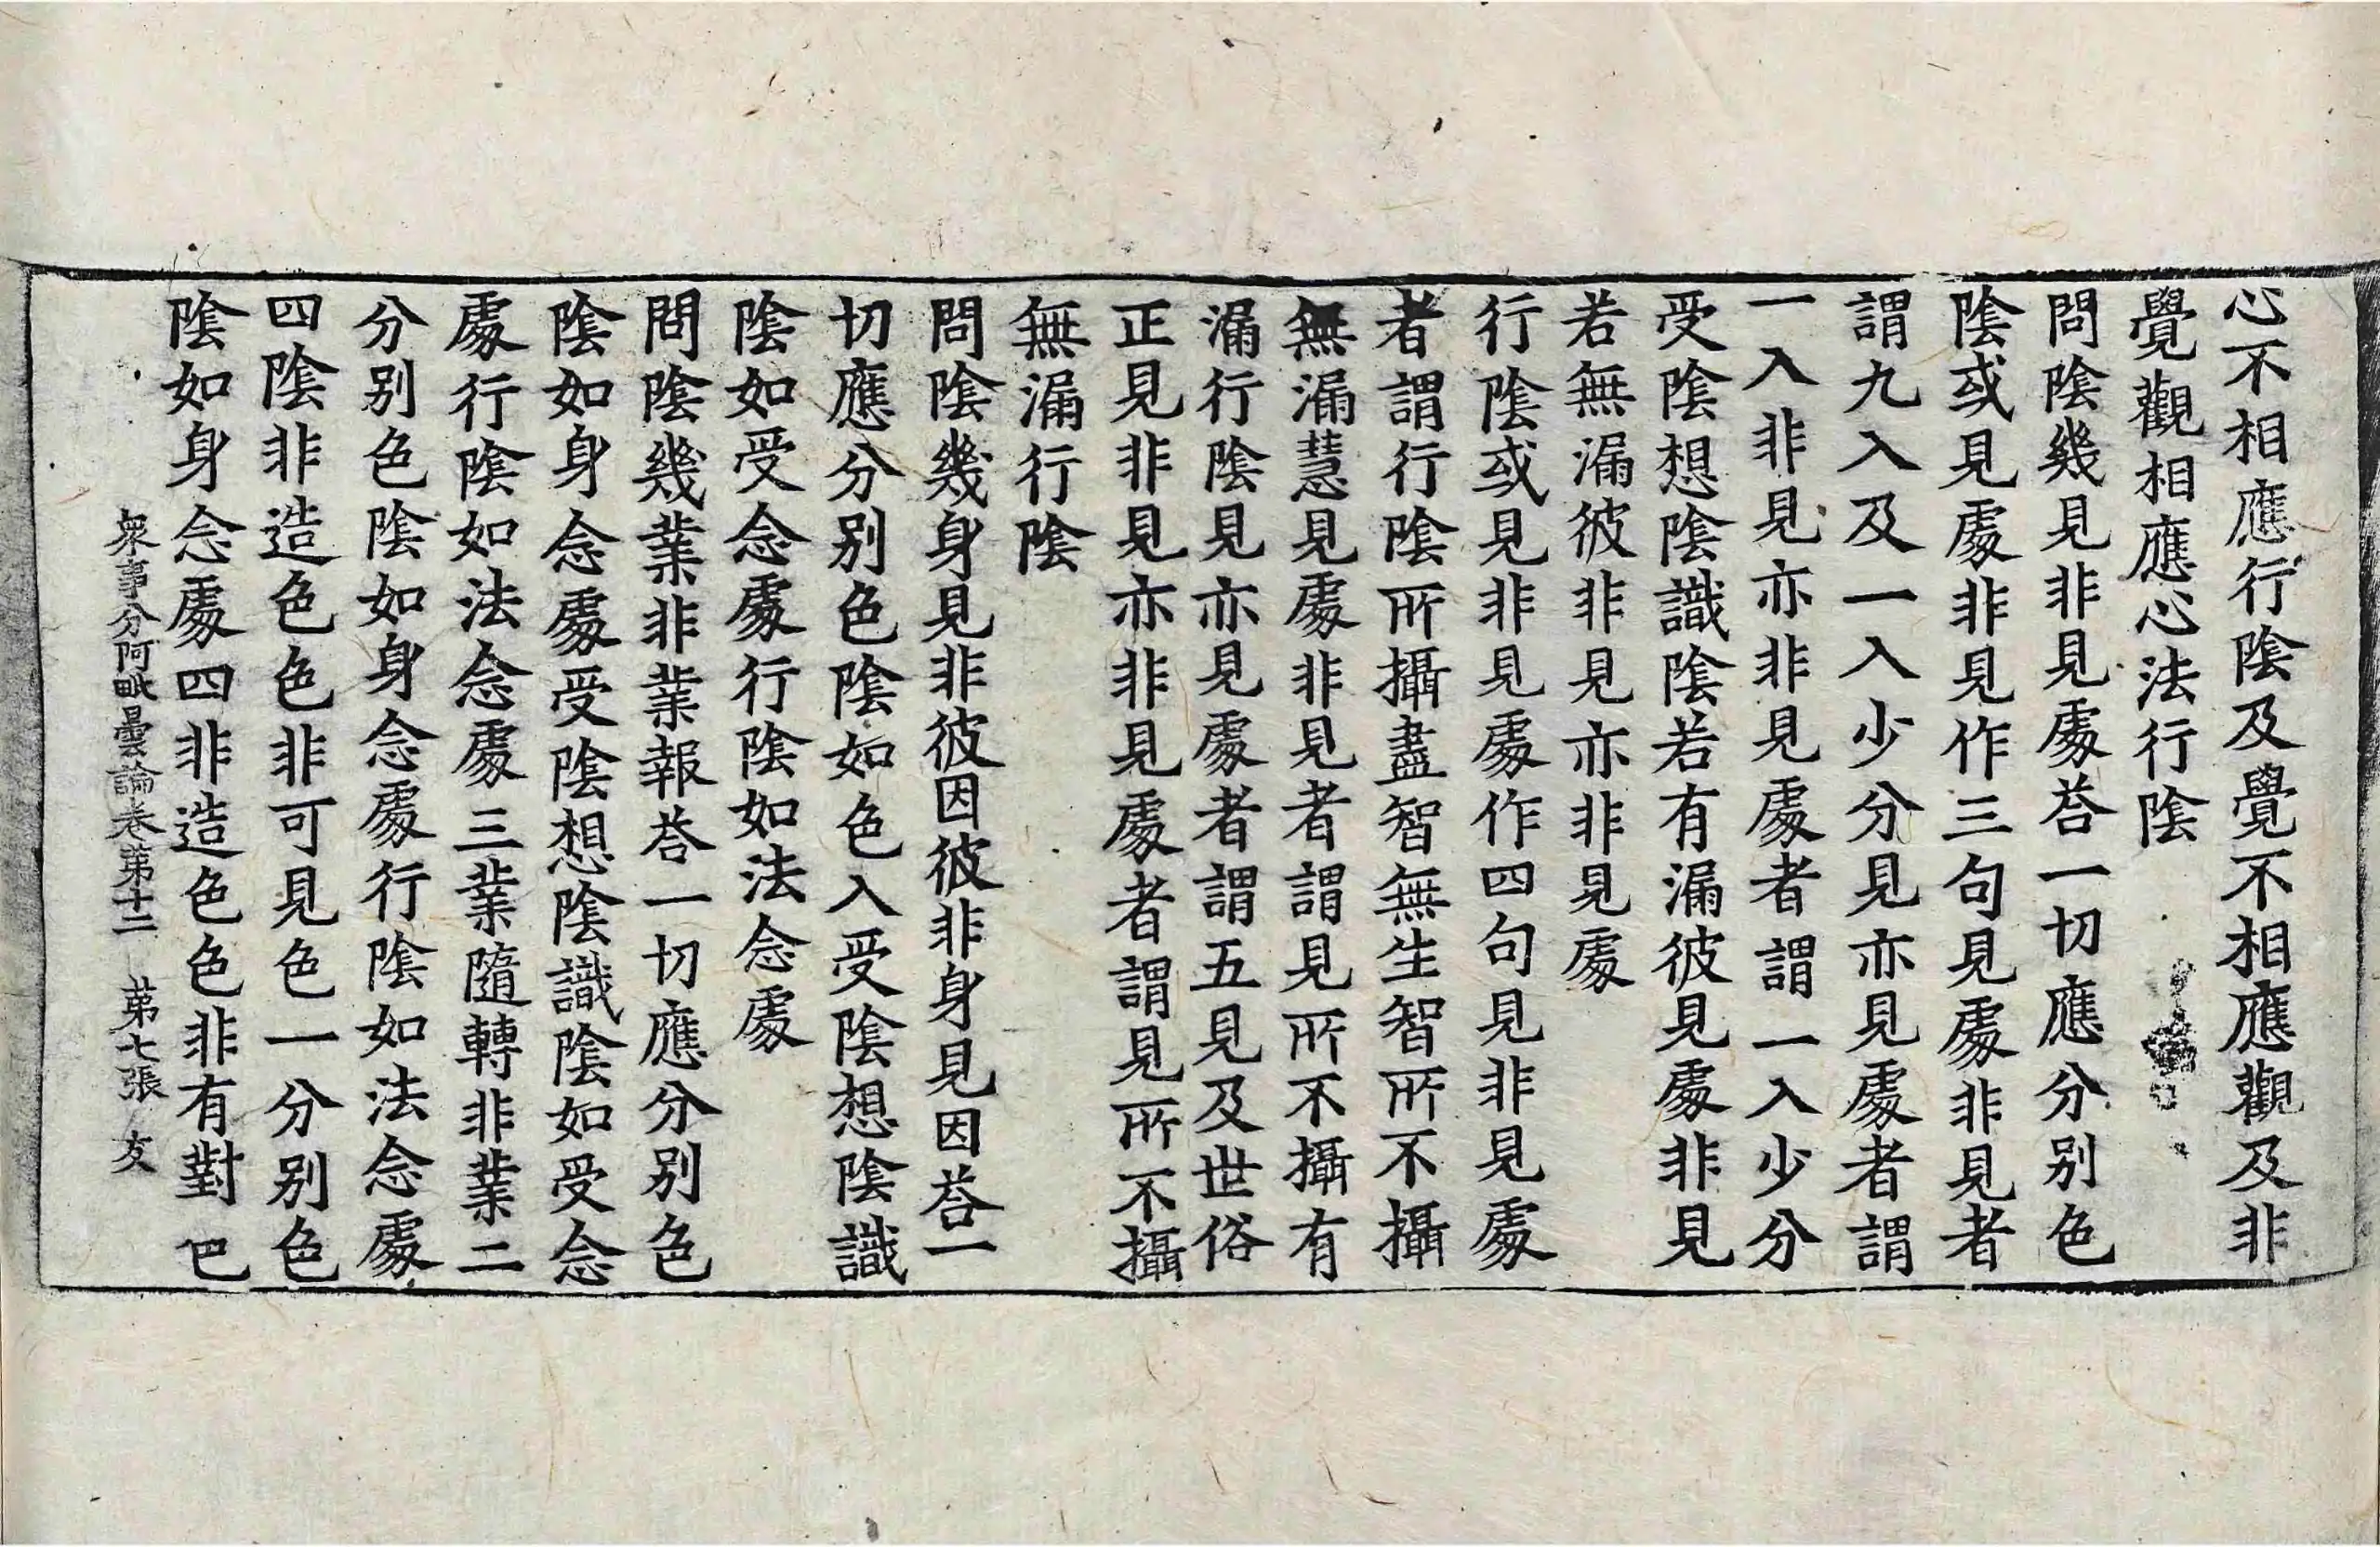 心不相應行陰及覺不相應觀及非
覺觀相應心法行陰
問陰幾見非見處荅一切應分别色
陰或見處非見作三句見處非見者
謂九入及一入少分見亦見處者謂
一入非見亦非見處者謂一入少分
受陰想陰識陰若有漏彼見處非見
若無漏彼非見亦非見處
行陰或見非見處作四句見非見處
者謂行陰所攝盡智無生智所不攝
無漏慧見處非見者謂見所不攝有
漏行陰見亦見處者謂五見及世俗
正見非見亦非見處者謂見所不攝
無漏行陰
問陰幾身見非彼因彼非身見因荅一
切應分别色陰如色入受陰想陰識
陰如受念處行陰如法念處
問陰幾業非業報荅一切應分别色
陰如身念處受陰想陰識陰如受念
處行陰如法念處三業隨轉非業二
分别色陰如身念處行陰如法念處
四陰非造色色非可見色一分别色
陰如身念處四非造色色非有對 巴
衆事分阿毗曇論卷苐十二 苐七張 友